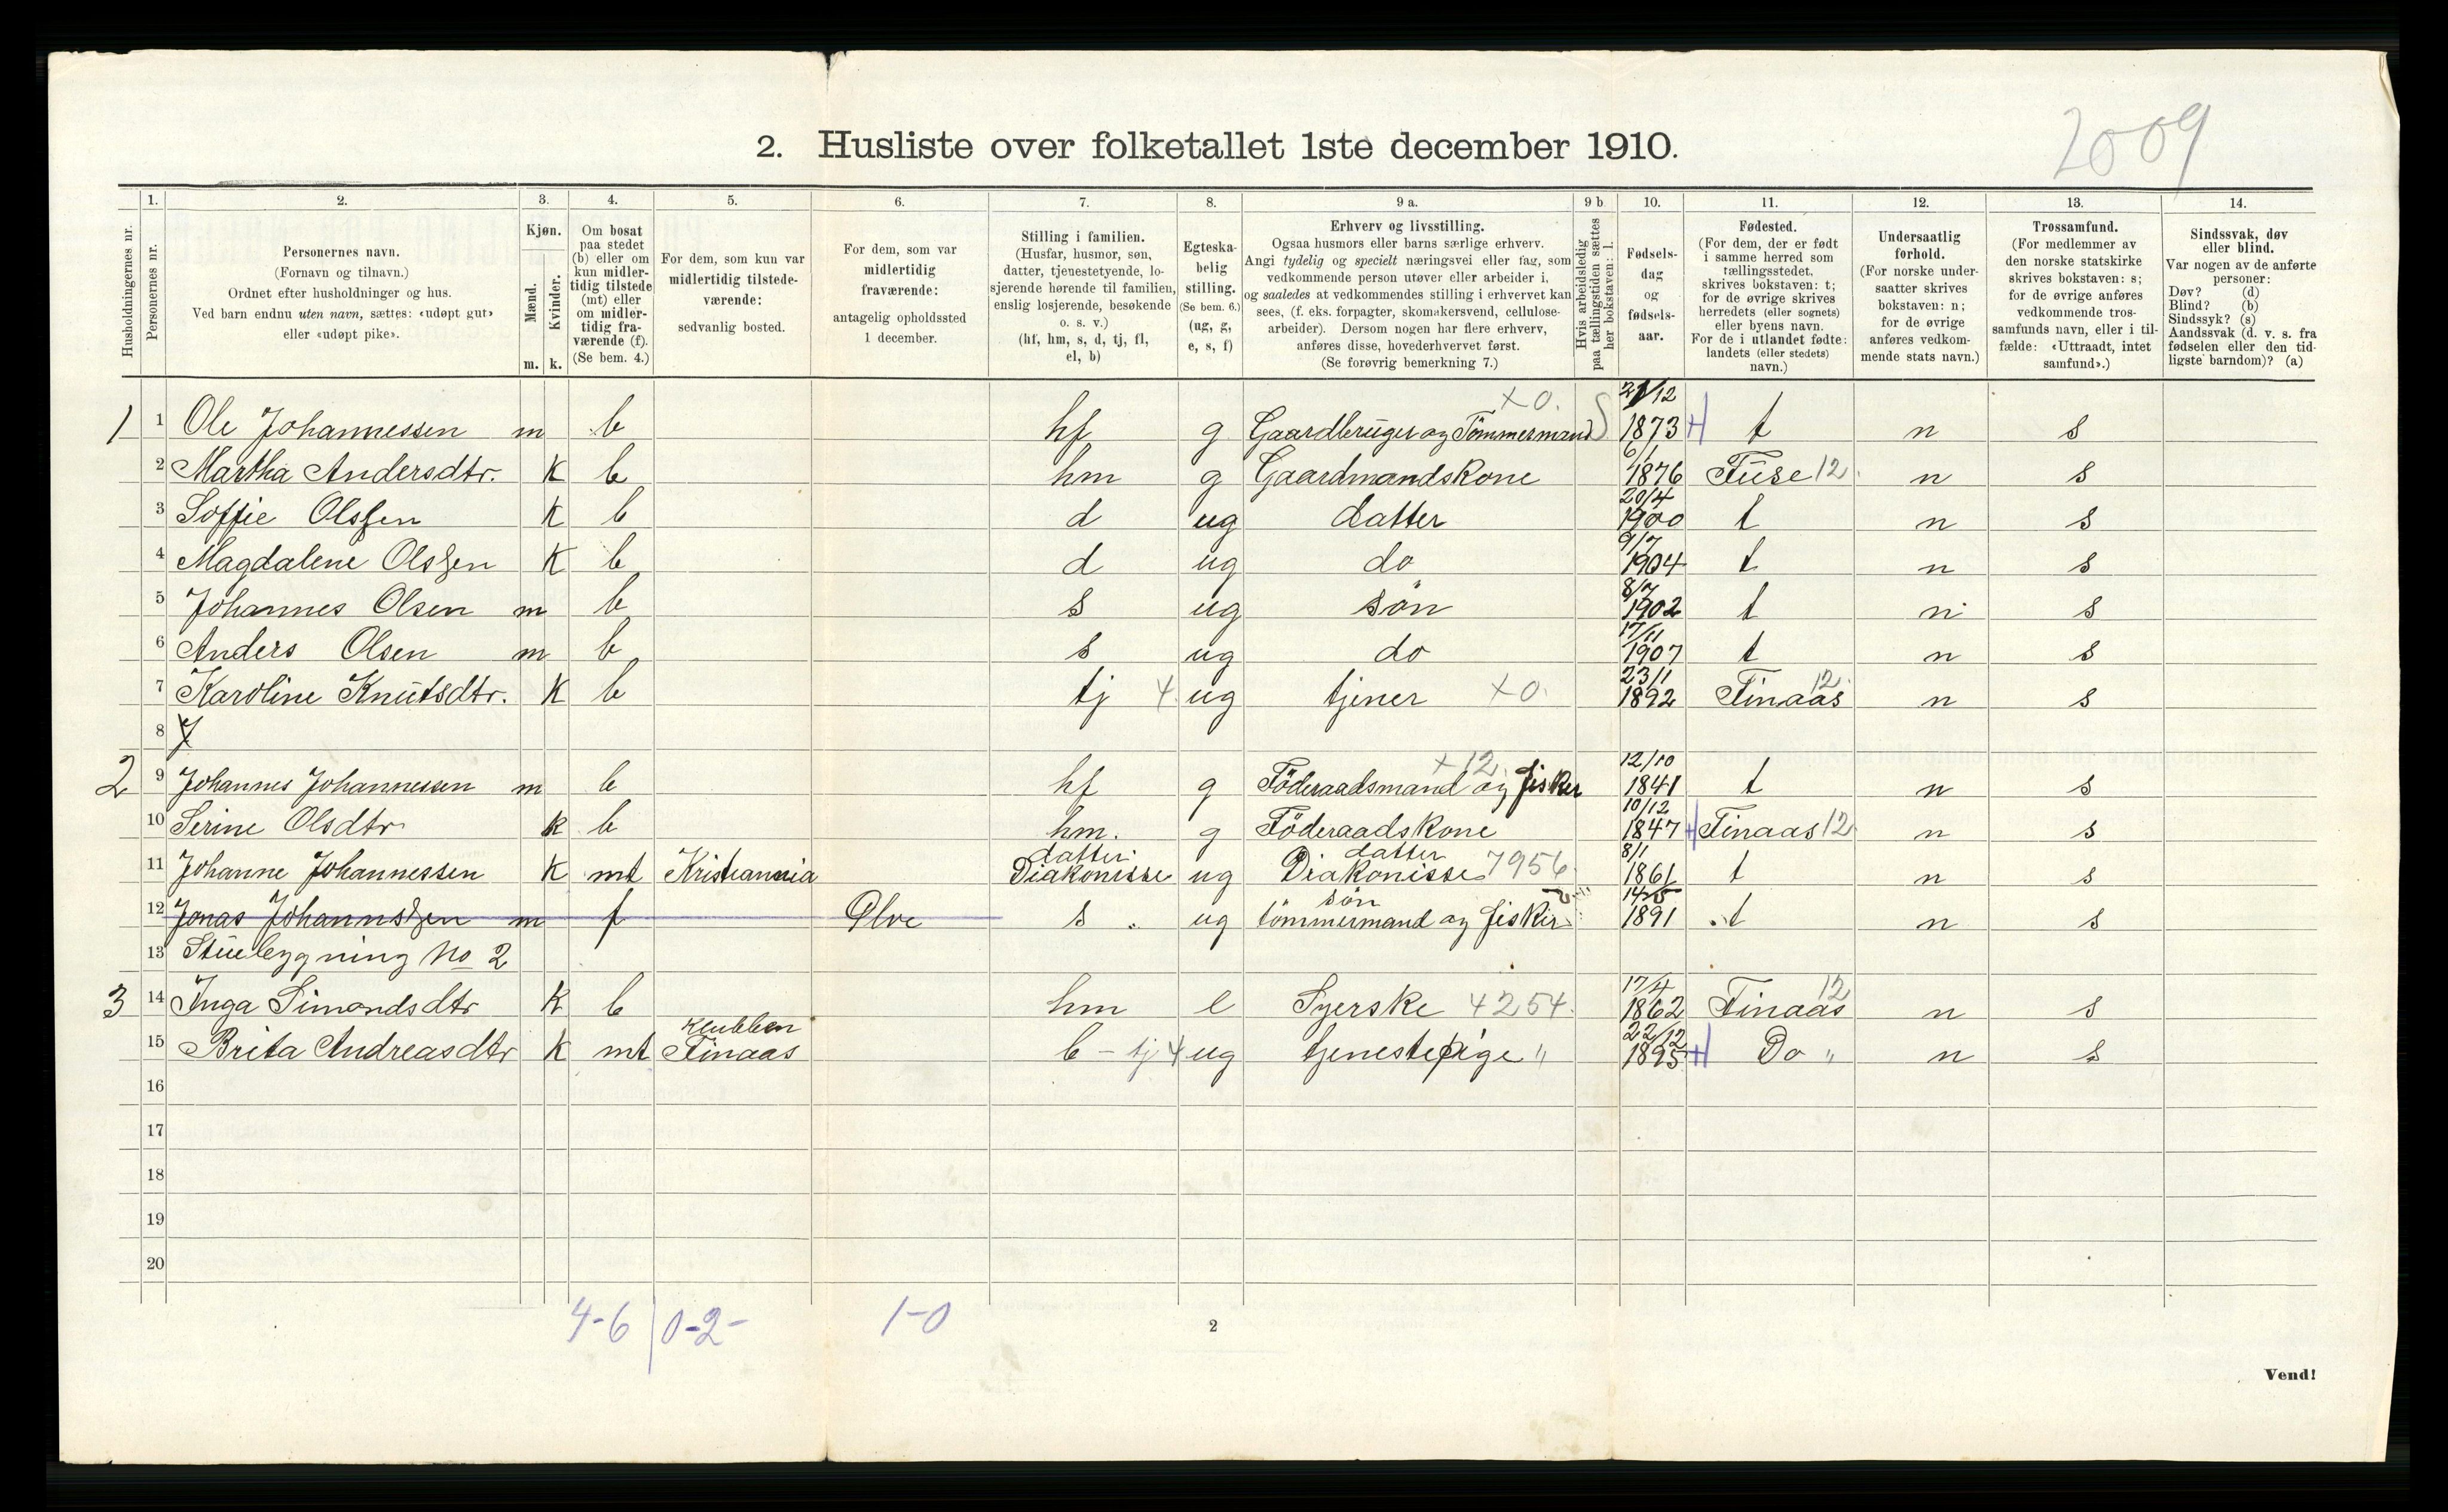 2009
2. Husliste over folketallet 1ste december 1910.
Husholdningernes nr.
1. Personernes nr.
2. Personernes navn. (Fornavn og tilnavn.) Ordnet efter husholdninger og hus. Ved barn endnu uten navn, sættes: «udøpt gut» eller «udøpt pike».
3. Kjøn. Mænd. m. Kvinder. k.
4. Om bosat paa stedet (b) eller om kun midlertidig tilstede (mt) eller om midlertidig fraværende (f). (Se bem. 4.)
5. For dem, som kun var midlertidig tilstedeværende: sedvanlig bosted.
6. For dem, som var midlertidig fraværende: antagelig opholdssted 1 december.
7. Stilling i familien. (Husfar, husmor, søn, datter, tjenestetyende, losjerende hørende til familien, enslig losjerende, besøkende o. s. v.) (hf, hm, s, d, tj, fl, el, b)
8. Egteskabelig stilling. (Se bem. 6.) (ug, g, e, s, f)
9 a. Erhverv og livsstilling. Ogsaa husmors eller barns særlige erhverv. Angi tydelig og specielt næringsvei eller fag, som vedkommende person utøver eller arbeider i, og saaledes at vedkommendes stilling i erhvervet kan sees, (f. eks. forpagter, skomakersvend, cellulosearbeider). Dersom nogen har flere erhverv, anføres disse, hovederhvervet først. (Se forøvrig bemerkning 7.)
9 b Hvis arbeidsledig paa tællingstiden sættes her bokstaven: l.
10. Fødselsdag og fødselsaar.
11. Fødested. (For dem, der er født i samme herred som tællingsstedet, skrives bokstaven: t; for de øvrige skrives herredets (eller sognets) eller byens navn. For de i utlandet fødte: landets (eller stedets) navn.)
12. Undersaatlig forhold. (For norske undersaatter skrives bokstaven: n; for de øvrige anføres vedkommende stats navn.)
13. Trossamfund. (For medlemmer av den norske statskirke skrives bokstaven: s; for de øvrige anføres vedkommende trossamfunds navn, eller i tilfælde: «Uttraadt, intet samfund».)
14. Sindssvak, døv eller blind. Var nogen av de anførte personer: Døv? (d) Blind? (b) Sindssyk? (s) Aandssvak (d. v. s. fra fødselen eller den tidligste barndom)? (a)
1 1 Ole Johannessen m b hf g Gaardbruger og Tömmermand x0. 21/12 1873 t n s
2 Martha Andersdtr. K b hm g Gaardmandskone 6/1 1876 Fuse 12 n s
3 Soffie Olssen K b d ug datter 20/4 1900 t n s
4 Magdalene Olssen K b d ug do 9/7 1904 t n s
5 Johannes Olsen m b s ug sön 8/7 1902 t n s
6 Anders Olsen m b s ug do 17/11 1907 t n s
7 Karoline Knutsdtr. K b tj 4 ug tjener x0. 23/1 1892 Finaas 12 n s
8
2 9 Johannes Johannessen m b hf g Föderaadsmand og fisker x12 12/10 1841 t n s
10 Serine Olsdtr k b hm. g Föderaadskone 10/12 1847 Finaas 12 n s
11 Johanne Johannessen K mt Kristiannia datter Diakonisse ug datter Diakonisse 7956 8/1 1861 t n s
12 Jonas Johannssen m f Ølve s ug sön tömmermand og fisker 14/5 1891 t n s
13 Stuebygning No 2
3 14 Inga Simondsdtr K b hm e Syerske 4254. 17/4 1862 Finaas 12 n s
15 Brita Andreasdtr K mt Klubben Finaas b - tj 4 ug tjenestepige " 22/12 1895 Do " n s
16
17
18
19
20
4-6 0-2- 1-0
2
Vend!